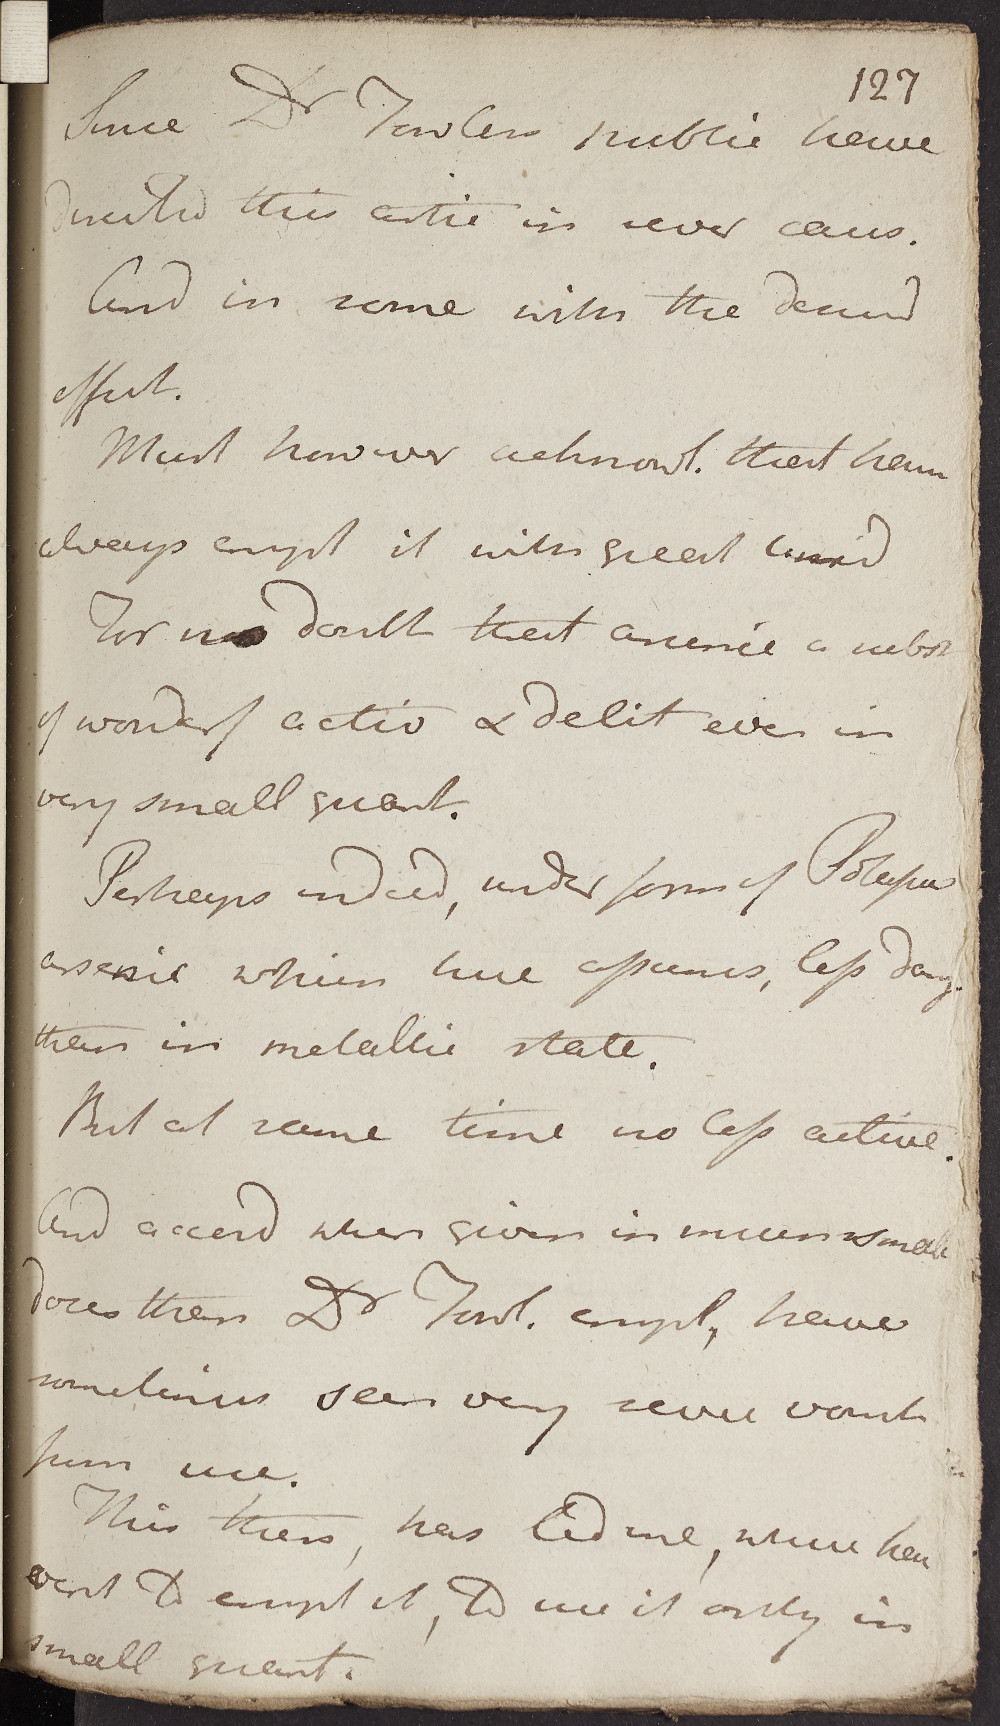 127
Since Dr Fowlers public have
directed this artic in sever cases.
And in some with the desired
effect.
Must however acknowl. that have
always empl it with great
For no doubt that arsenic a subst
of wonderf activ & delet even in
very small quant.
Perhaps indeed, under form of Potassae
arsenic which here assumes, less dang.
than in metallic state.
But at same time no less active.
And accord when given in much smaller
doses than Dr Fowl. empl, have
sometimes seen very severe vomit
from use.
This then, has led me, where have
vent to empl it, to use it only in
small quant.